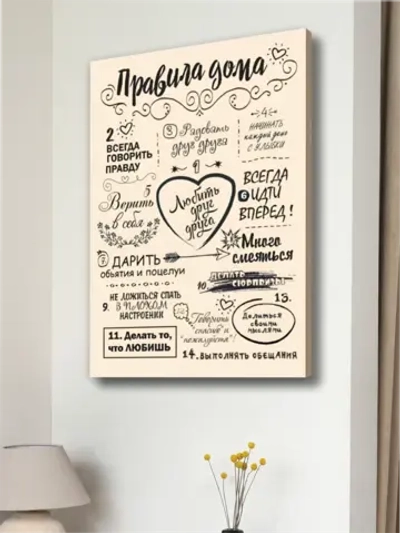 Правила дома
2
ВСЕГДА
ГОВОРИТЬ
ПРАВДУ
3 Радовать
друг друга
4
НАЧИНАТЬ
каждый день
с улыбки
5
Верить
в себя
1
Любить
друг
друга
ВСЕГДА
6 ИДТИ
ВПЕРЕД!
7 ДАРИТЬ
объятия и поцелуи
8 Много
смеяться
9. НЕ ЛОЖИТЬСЯ СПАТЬ
В ПЛОХОМ
НАСТРОЕНИИ
10. ДЕЛАТЬ
СЮРПРИЗЫ
11. Делать то,
что ЛЮБИШЬ
Говорить
"спасибо" и
"пожалуйста"!
13.
Делиться
своими
мыслями
14. ВЫПОЛНЯТЬ ОБЕЩАНИЯ